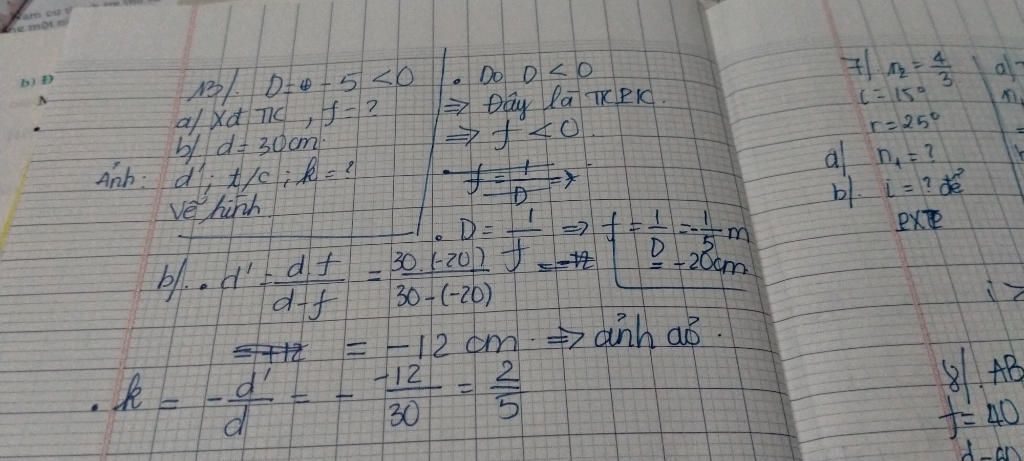 13/. D = - 5 < 0
a/ Xđ TK , f = ?
b/ d = 30cm
Ảnh: d'; t/c ; k = ?
Vẽ hình
. Do D < 0
=> Đây là TKPK.
=> f < 0
. f = 1/D =>
. D = 1/f => f = 1/D = -1/5 m
= -20cm
b/. d' = df/(d-f) = 30.(-20)/(30-(-20))
= -12 cm => ảnh ảo.
. k = -d'/d = - -12/30 = 2/5
7/ n₂ = 4/3
i = 15°
r = 25°
a/ n₁ = ?
b/. i = ? để
PXTP
a/
8/. AB
f = 40
b) D